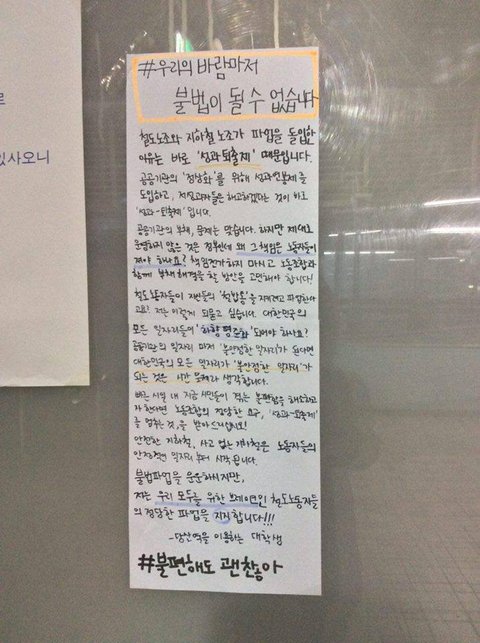 #우리의 바람마저
불법이 될 수 없습니다
철도노조와 지하철 노조가 파업을 돌입한
이유는 바로 '성과퇴출제' 때문입니다.
공공기관의 '정상화'를 위해 성과연봉제를
도입하고, 저성과자들은 해고하겠다는 것이 바로
'성과-퇴출제'입니다.
공공기관의 부채, 문제는 맞습니다. 하지만 제대로
운영하지 않은 것은 정부인데 왜 그 책임은 노동자들이
져야 하나요? 책임전가하지 마시고 노동조합과
함께 부채해결을 할 방안을 고민해야 합니다!
철도 노동자들이 자신들의 '철밥통'을 지키려고 파업한다
고요? 저는 이렇게 되묻고 싶습니다. 대한민국의
모든 일자리들이 '하향 평준화' 되어야 하나요?
공공기관의 일자리 마저 '불안정한 일자리'가 된다면
대한민국의 모든 일자리가 '불안정한 일자리'가
되는 것은 시간 문제라 생각합니다.
빠른 시일 내 지금 시민들이 겪는 불편함을 해소하고
자 한다면 노동조합의 정당한 요구, '성과-퇴출제'
를 멈추는 것,을 받아드리십시오!
안전한 지하철, 사고 없는 지하철은 노동자들의
안정적인 일자리 부터 시작 됩니다.
불법파업을 운운하시지만,
저는 우리 모두를 위한 브레이크인 철도노동자들
의 정당한 파업을 지지합니다!!!
-당산역을 이용하는 대학생
#불편해도 괜찮아
르
있사오니